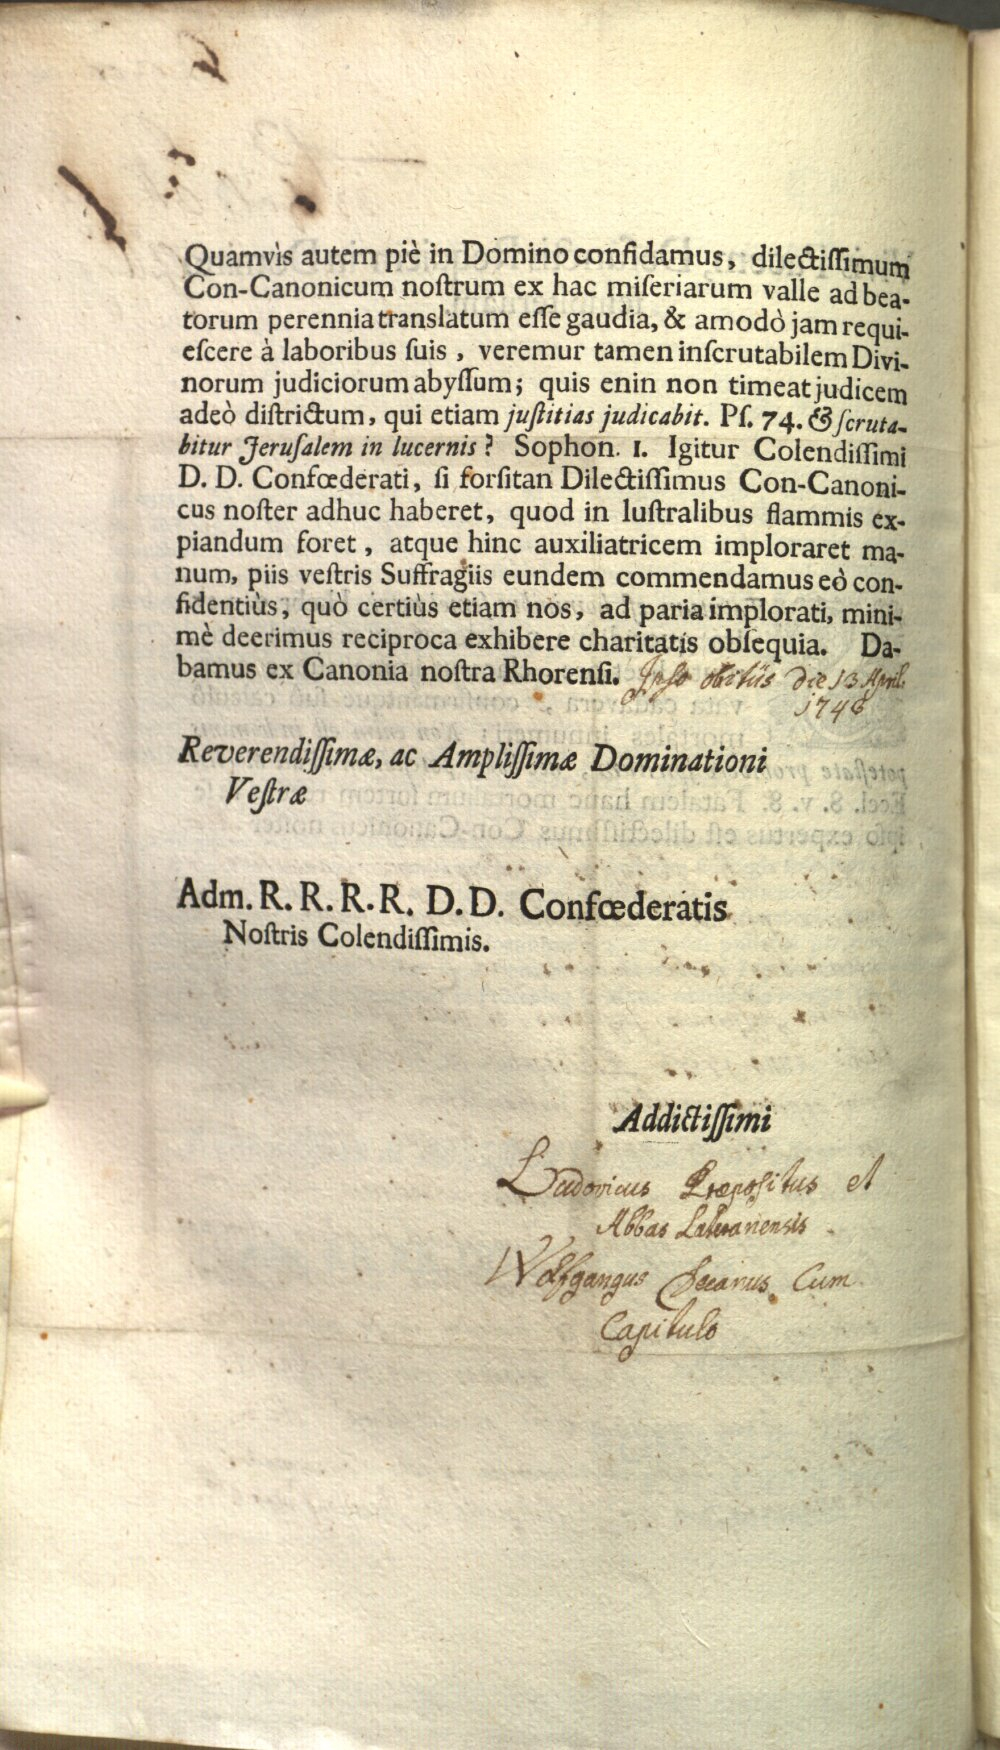 Quamvìs autem piè in Domino confidamus, dilectiſſimum
Con-Canonicum noſtrum ex hac miſeriarum valle ad bea-
torum perennia translatum eſſe gaudia, & amodò jam requi-
eſcere à laboribus ſuis, veremur tamen inſcrutabilem Divi-
norum judiciorum abyſſum; quis enin non timeat judicem
adeò diſtrictum, qui etiam juſtitias judicabit. Pſ. 74. & ſcruta-
bitur Jeruſalem in lucernis? Sophon. 1. Igitur Colendiſſimi
D. D. Confœderati, ſi forſitan Dilectiſſimus Con-Canoni-
cus noſter adhuc haberet, quod in luſtralibus flammis ex-
piandum foret, atque hinc auxiliatricem imploraret ma-
num, piis veſtris Suffragiis eundem commendamus eò con-
fidentiùs, quò certiùs etiam nos, ad paria implorati, mini-
mè deerimus reciproca exhibere charitatis obſequia. Da-
bamus ex Canonia noſtra Rhorenſi. Ipso obitûs die 13 April:
Reverendiſſimæ, ac Ampliſſimæ Dominationi
Veſtræ
Adm. R. R. R. R. D. D. Confœderatis
Noſtris Colendiſſimis.
Addictiſſimi
Ludovicus Præpositus et
Abbas Lateranensis
Wolfgangus Decanus Cum
Capitulo